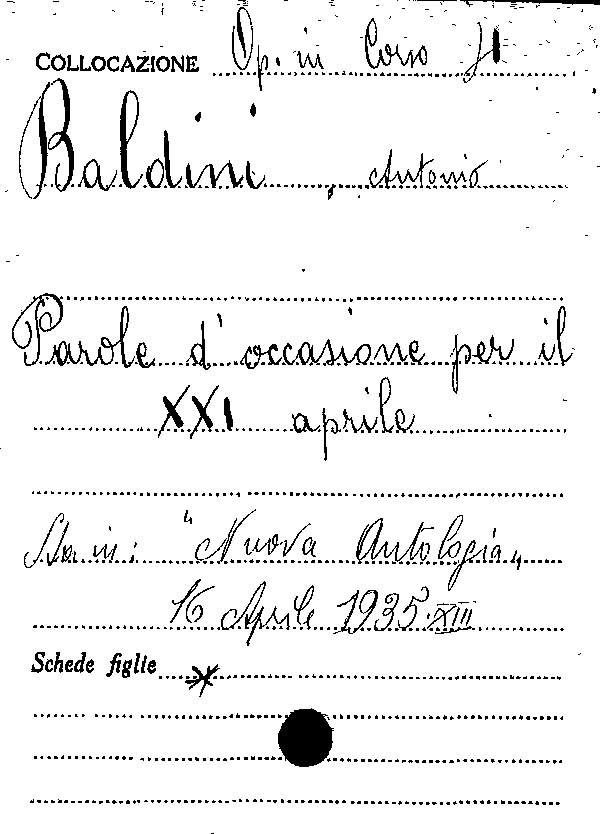 COLLOCAZIONE Op. in Corso
Baldini, Antonio
Parole d'occasione per il
XXI aprile
Sta in: "Nuova Antologia„
16 Aprile 1935·XIII
Schede figlie